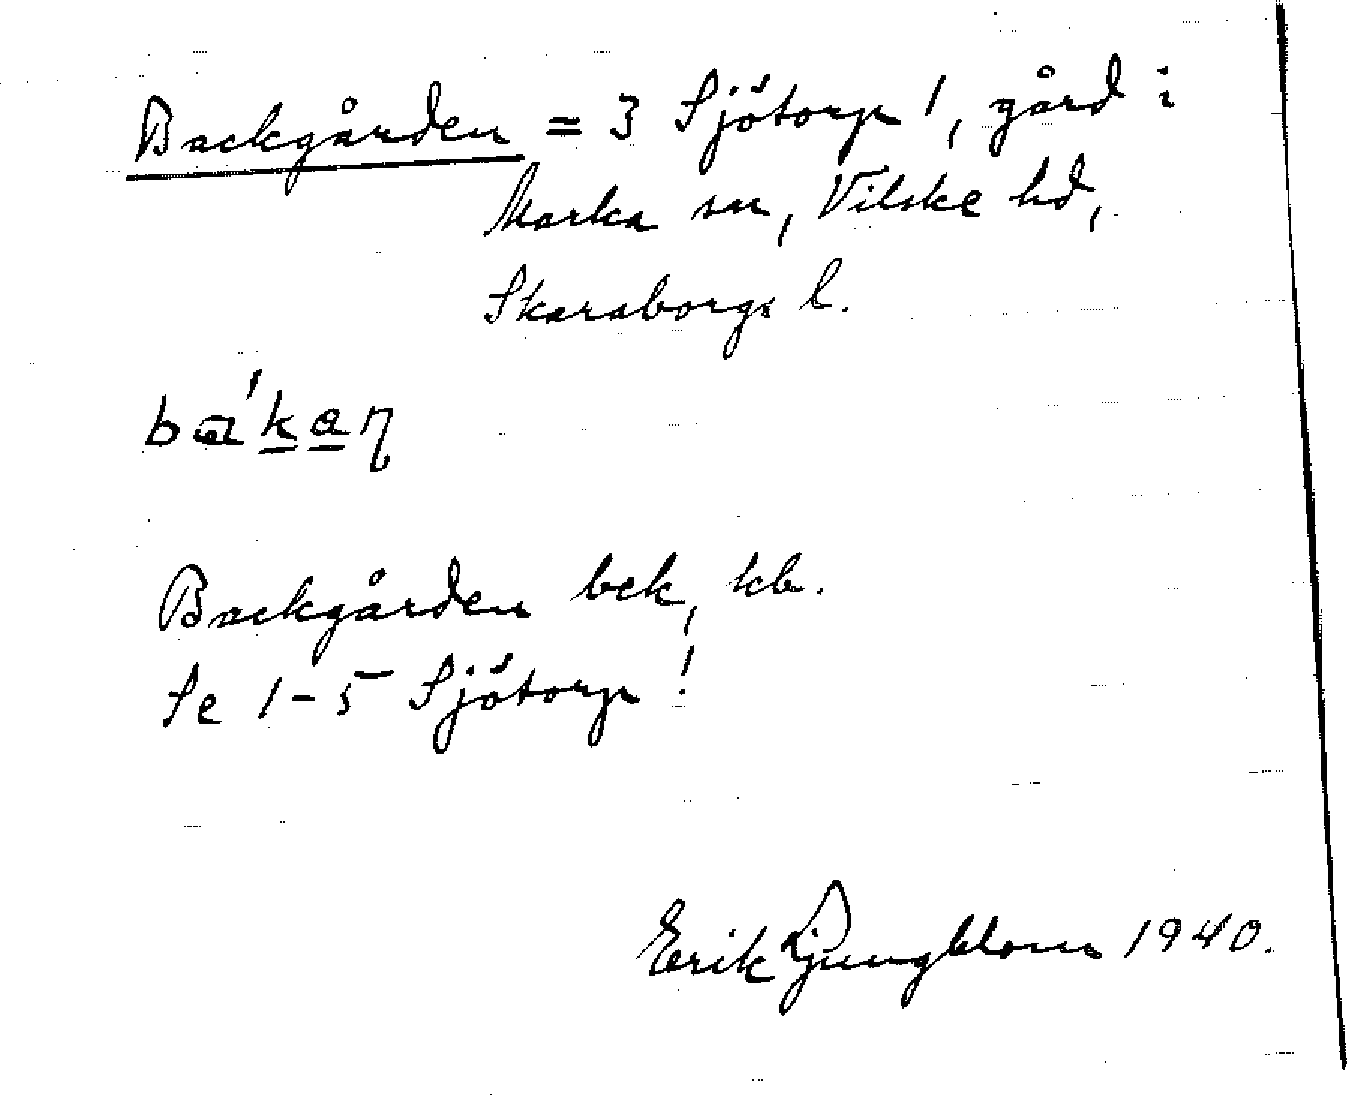 Backgården = 3 Sjötorp!, gård i
Marka sn, Vilske hd,
Skaraborgs l.
Backgården bek, kb.
Se 1-5 Sjötorp!
Erik Ljungblom 1940.